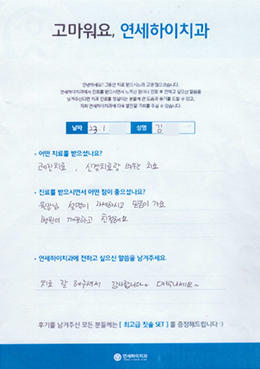 고마워요, 연세하이치과
안녕하세요! 그동안 치료 받으시느라 고생 많으셨습니다.
연세하이치과에서 진료를 받으시면서 느끼신 점이나 진료 후 전하고 싶으신 말씀을
남겨주신다면 치과 진료를 망설이는 분들께 큰 도움과 용기를 드릴 수 있고,
저희 연세하이치과에게 더욱 발전할 기회를 주실 수 있습니다.
날짜 23.1. 성명 김
• 어떤 치료를 받으셨나요?
, 신경치료랑 치료
• 진료를 받으시면서 어떤 점이 좋으셨나요?
설명이 자세하시고 믿음이 가요
병원이 깨끗하고 친절해요
• 연세하이치과에 전하고 싶으신 말씀을 남겨주세요.
치료 잘 해주셔서 감사합니다~
후기를 남겨주신 모든 분들께는 [ 최고급 칫솔 SET ] 를 증정해드립니다 :)
연세하이치과